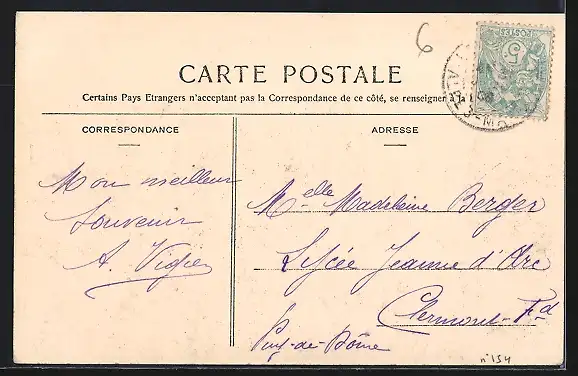 6
CARTE POSTALE
Certains Pays Etrangers n'acceptant pas la Correspondance de ce côté, se renseigner à la
CORRESPONDANCE
Mon meilleur
souvenir
A. Vigier
ADRESSE
Melle Madeleine Berger
Lycée Jeanne d'Arc
Clermont-Fd
Puy-de-Dôme
n° 154